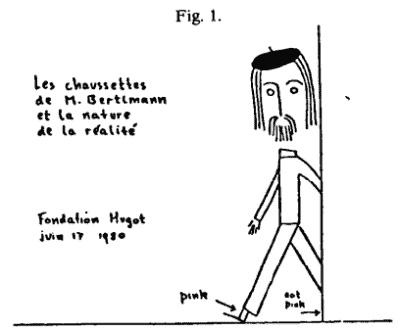 Fig. 1.
Les chaussettes
de M. Bertlmann
et la nature
de la réalité
Fondation Hugot
juin 17 1980
pink
not
pink